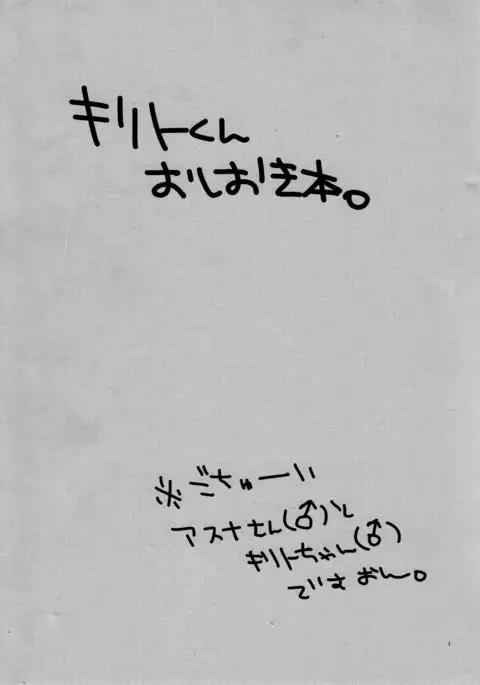 キリトくん
おしおき本。
※ごちゅーい
アスナさん(♂)と
キリトちゃん(♂)
でいす おん。